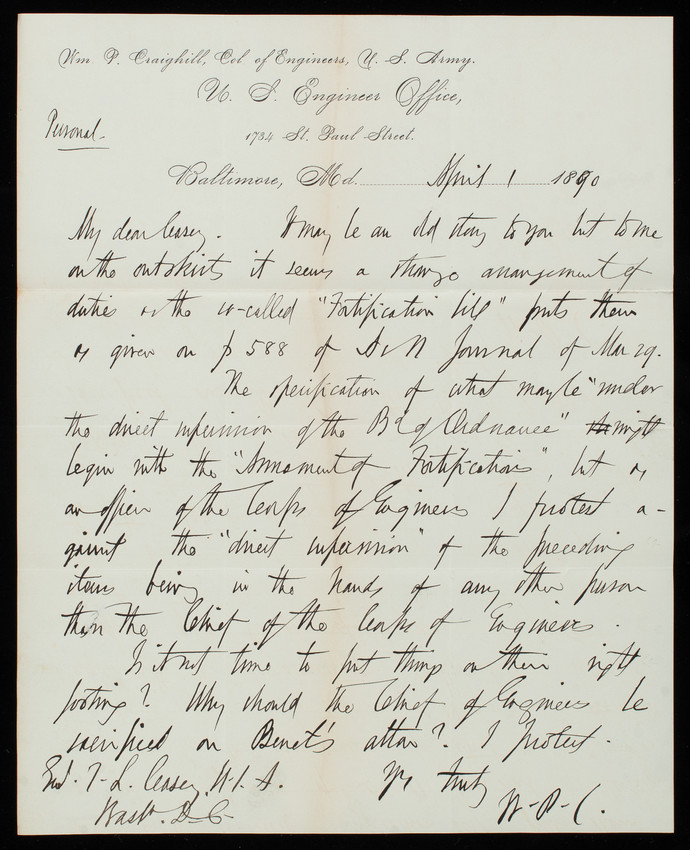 Wm. P. Craighill, Col of Engineers, U. S. Army.
U. S. Engineer Office,
Personal.
1734 St. Paul Street.
Baltimore, Md. April 1 1890
My dear Casey. It may be an old story to you but to me
on the outskirts it seems a strange arrangement of
duties as the so-called "Fortification bill" puts them
as given on p 588 of A & N Journal of Mar 29.
The specification of what may be "under
the direct supervision of the Bd of Ordnance" might
begin with the "Armament of Fortifications", but as
an officer of the Corps of Engineers I protest a-
gainst the "direct supervision" of the preceding
items being in the hands of any other person
than the Chief of the Corps of Engineers.
Is it not time to put things on their right
footing? Why should the Chief of Engineers be
sacrificed on Benet's altar? I protest.
Genl. T. L. Casey, U.S.A. Yrs truly
Washn. D.C. W.P.C.